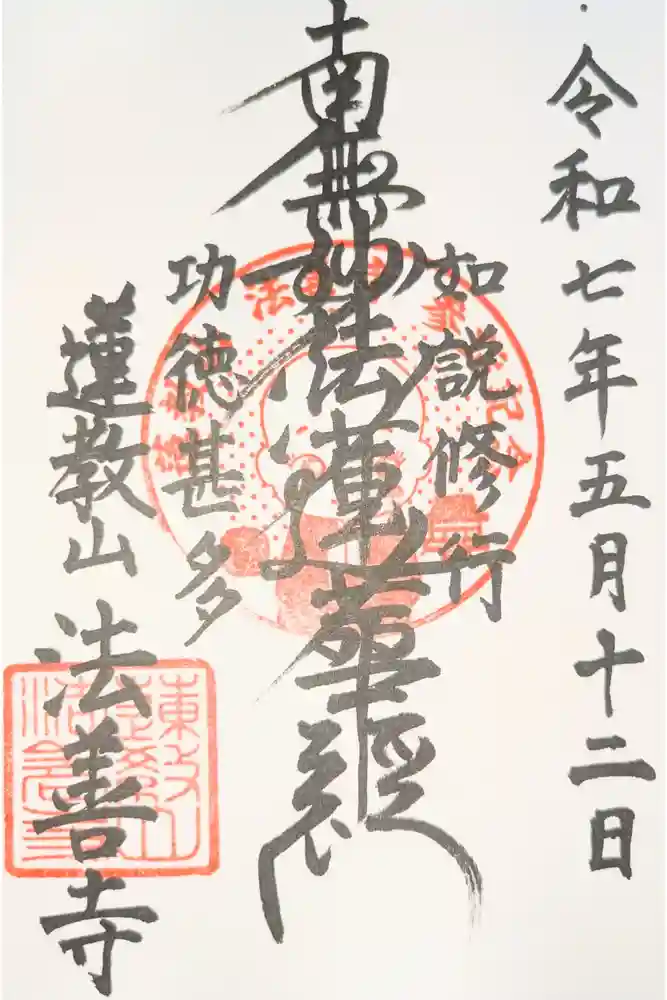 令和七年五月十二日
如説修行
南無妙法蓮華経
功徳甚多
蓮教山
法善寺